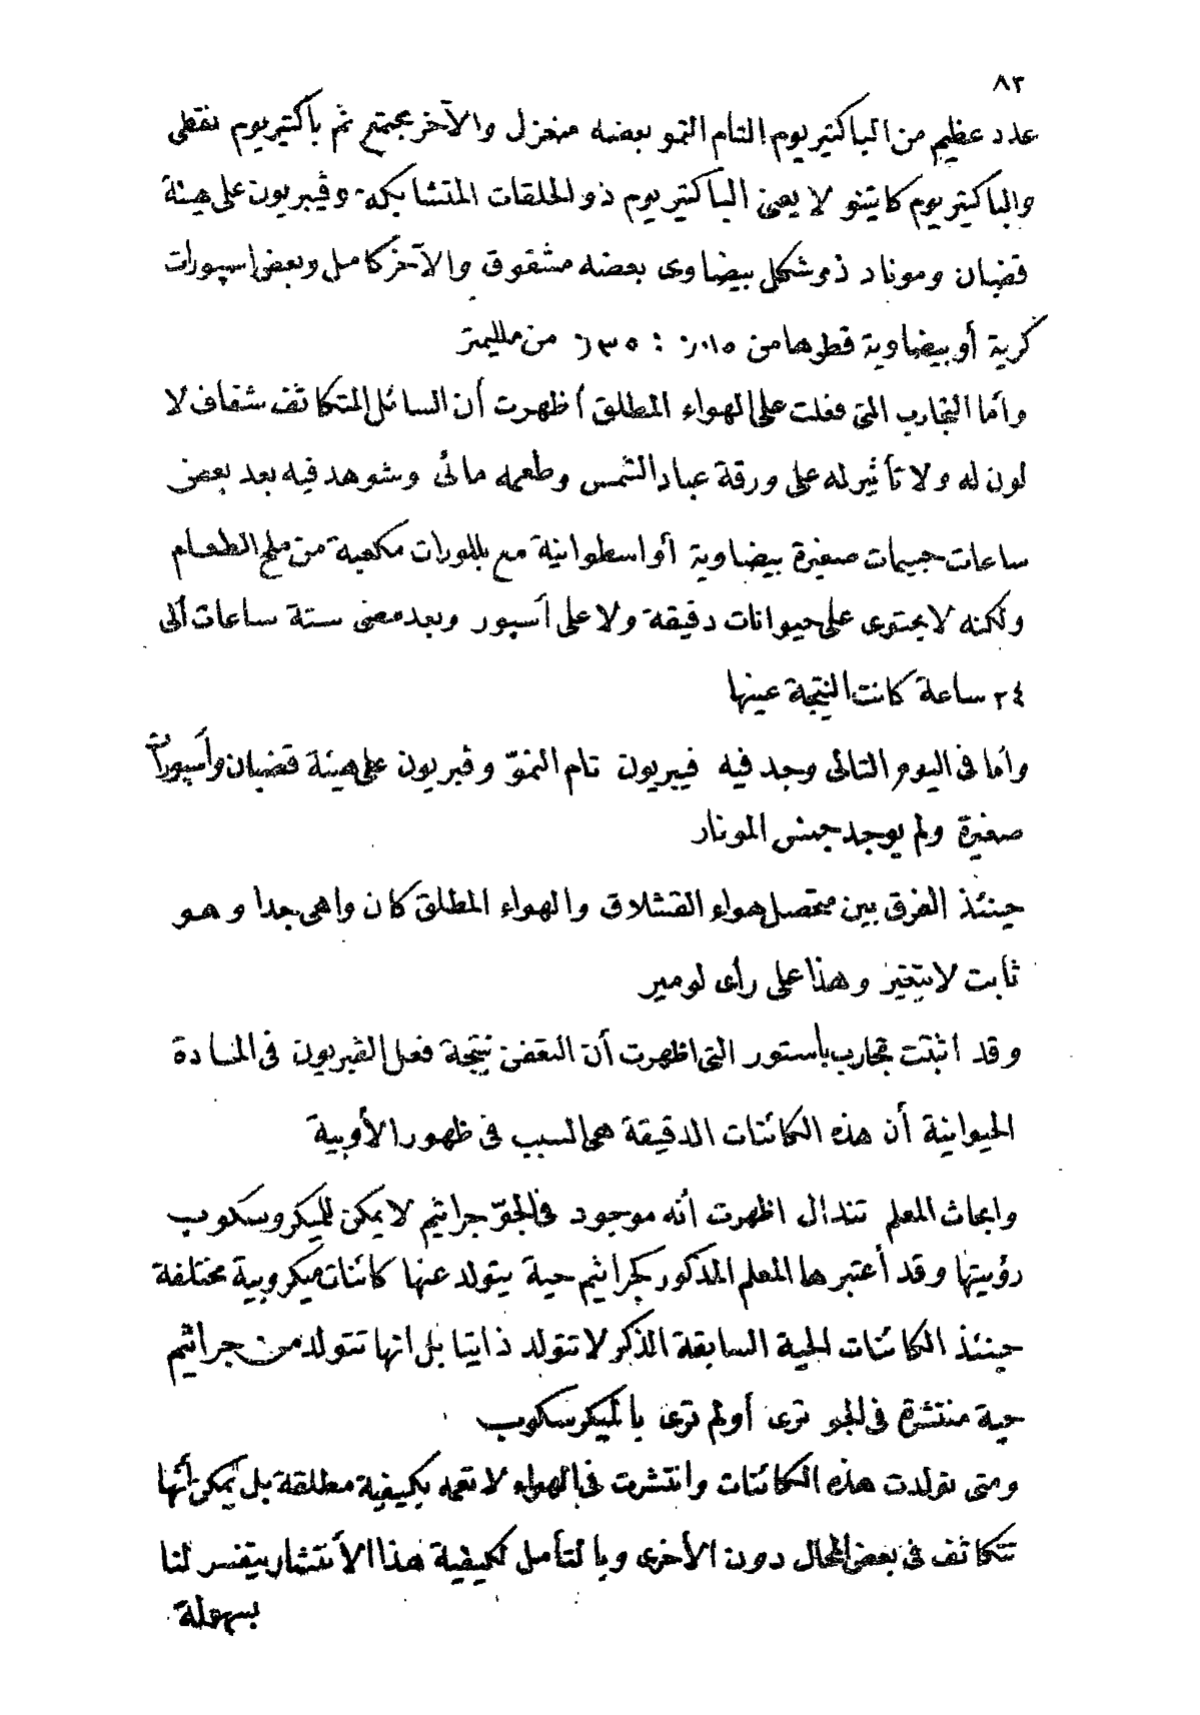 ٨٣
عدد عظيم من الباكتيريوم التام النمو بعضه منعزل والآخر مجتمع ثم باكتيريوم نقطى
والباكتيريوم كاتينو لا يعنى الباكتيريوم ذو الحلقات المتشابكة وڤيبريون على هيئة
قضبان وموناد ذو شكل بيضاوى بعضه مشقوق والآخر كامل وبعض اسپورات
كرية أو بيضاوية قطرها من من ملليمتر
وأما التجارب التى فعلت على الهواء المطلق أظهرت أن السائل المتكاثف شفاف لا
لون له ولا تأثير له على ورقة عباد الشمس وطعمه مائى وشوهد فيه بعد بعض
ساعات جسيمات صغيرة بيضاوية أو اسطوانية مع بللورات مكعبة من ملح الطعام
ولكنه لا يحتوى على حيوانات دقيقة ولا على أسپور وبعد مضى ستة ساعات ألى
٢٤ ساعة كانت النتيجة عينها
وأما فى اليوم التالى وجد فيه ڤيبريون تام النموّ وڤبريون على هيئة قضبان وأسپورات
صغيرة ولم يوجد جنس المونار
حينئذ الفرق بين متحصل هواء القشلاق والهواء المطلق كان واهى جدا وهو
ثابت لا يتغير وهذا على رأى لومير
وقد اثبتت تجارب باستور التى اظهرت أن التعفن نتيجة فعل الڤبريون فى المادة
الحيوانية أن هذه الكائنات الدقيقة هى السبب فى ظهور الأوبية
وابحاث المعلم تندال اظهرت أنه موجود فى الجوّ جراثيم لا يمكن للميكروسكوب
رؤيتها وقد أعتبرها المعلم المذكور كجراثيم حية يتولد عنها كائنات ميكروبية مختلفة
حينئذ الكائنات الحية السابقة الذكر لا تتولد ذاتيا بل انها تتولد من جراثيم
حية منتشرة فى الجو ترى أو لم ترى بالميكرسكوب
ومتى تولدت هذه الكائنات وانتشرت فى الهواء لا تعمه بكيفية مطلقة بل يمكن أنها
تتكاثف فى بعض المحال دون الأخرى وبالتأمل لكيفية هذا الأنتشار يتفسر لنا
بسهولة